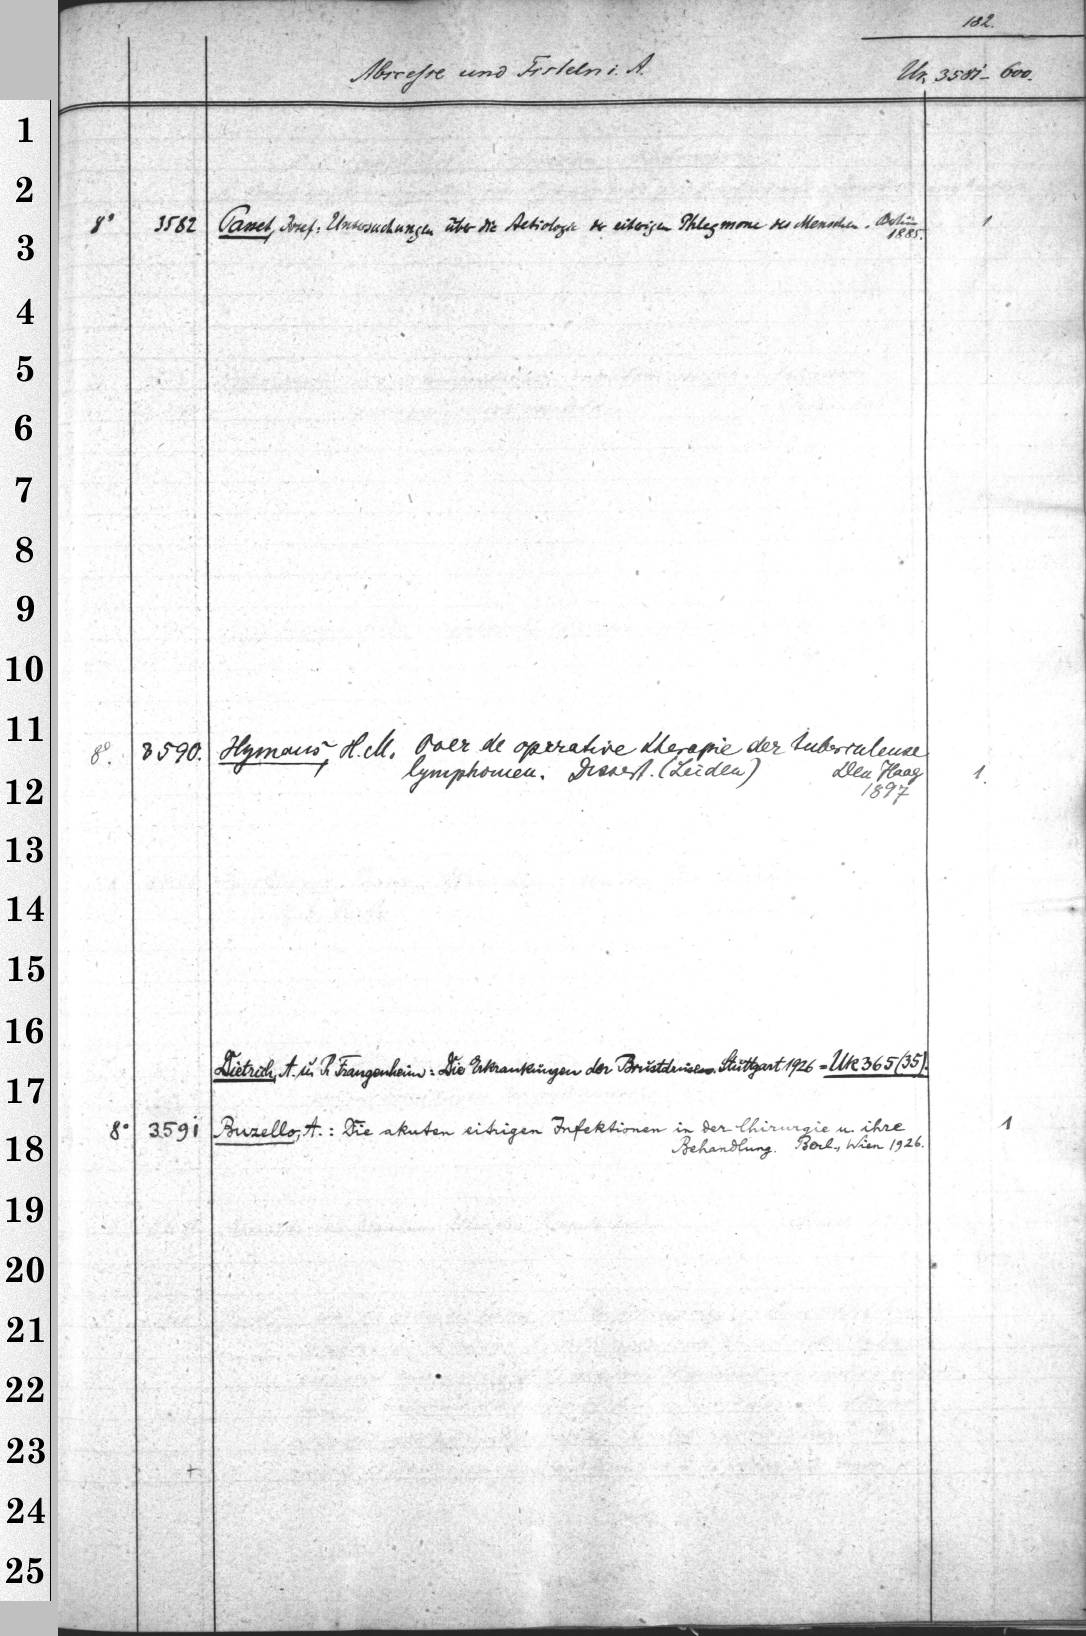 182.
Abscesse und Fisteln i. A. Uk 3581-600.
8° 3582 Passet, Josef: Untersuchungen über die Aetiologie der eiterigen Phlegmone des Menschen. Berlin 1
1885.
8° 3590. Hymans, H. M. Over de operative therapie der tuberculeuse
lymphomen. Dissert. (Leiden) Den Haag 1.
1897
Dietrich, A. u. P. Frangenheim: Die Erkrankungen der Brustdrüse. Stuttgart 1926 = Uk 365 (35).
8° 3591 Buzello, A.: Die akuten eitrigen Infektionen in der Chirurgie u. ihre 1
Behandlung. Berl., Wien 1926.
1
2
3
4
5
6
7
8
9
10
11
12
13
14
15
16
17
18
19
20
21
22
23
24
25